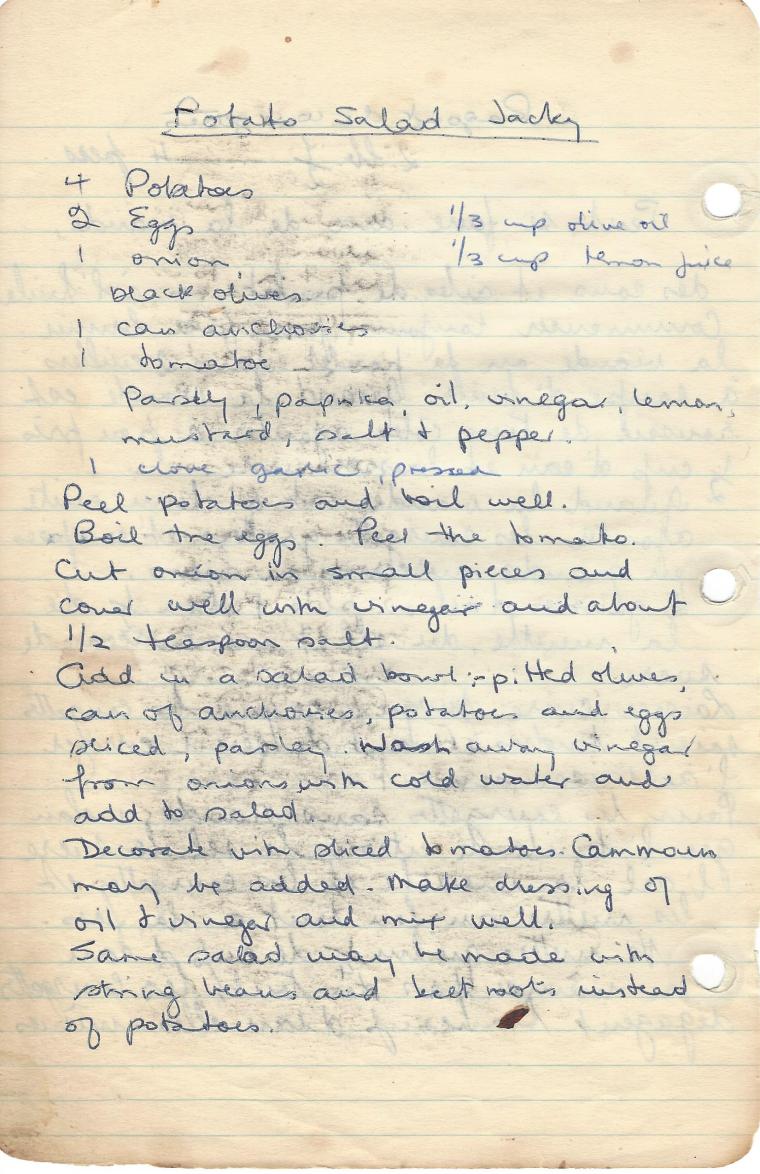 Potatto Salad Jacky
4 Potatoes
2 Eggs 1/3 cup olive oil
1 onion, 1/3 cup lemon juice
black olives.
1 can anchovies
1 tomatoe
Parsley, paprika, oil, vinegar, lemon,
mustard, salt & pepper.
1 clove garlic, pressed
Peel potatoes and boil well.
Boil the eggs. Peel the tomato.
Cut onion in small pieces and
cover well with vinegar and about
1/2 teaspoon salt.
Add in a salad bowl :- pitted olives,
can of anchovies, potatoes and eggs
sliced, parsley. Wash away vinegar
from onions, with cold water and
add to salad.
Decorate with sliced tomatoes. Cammoun
may be added. Make dressing of
oil & vinegar and mix well.
Same salad may be made with
string beans and beet roots instead
of potatoes.